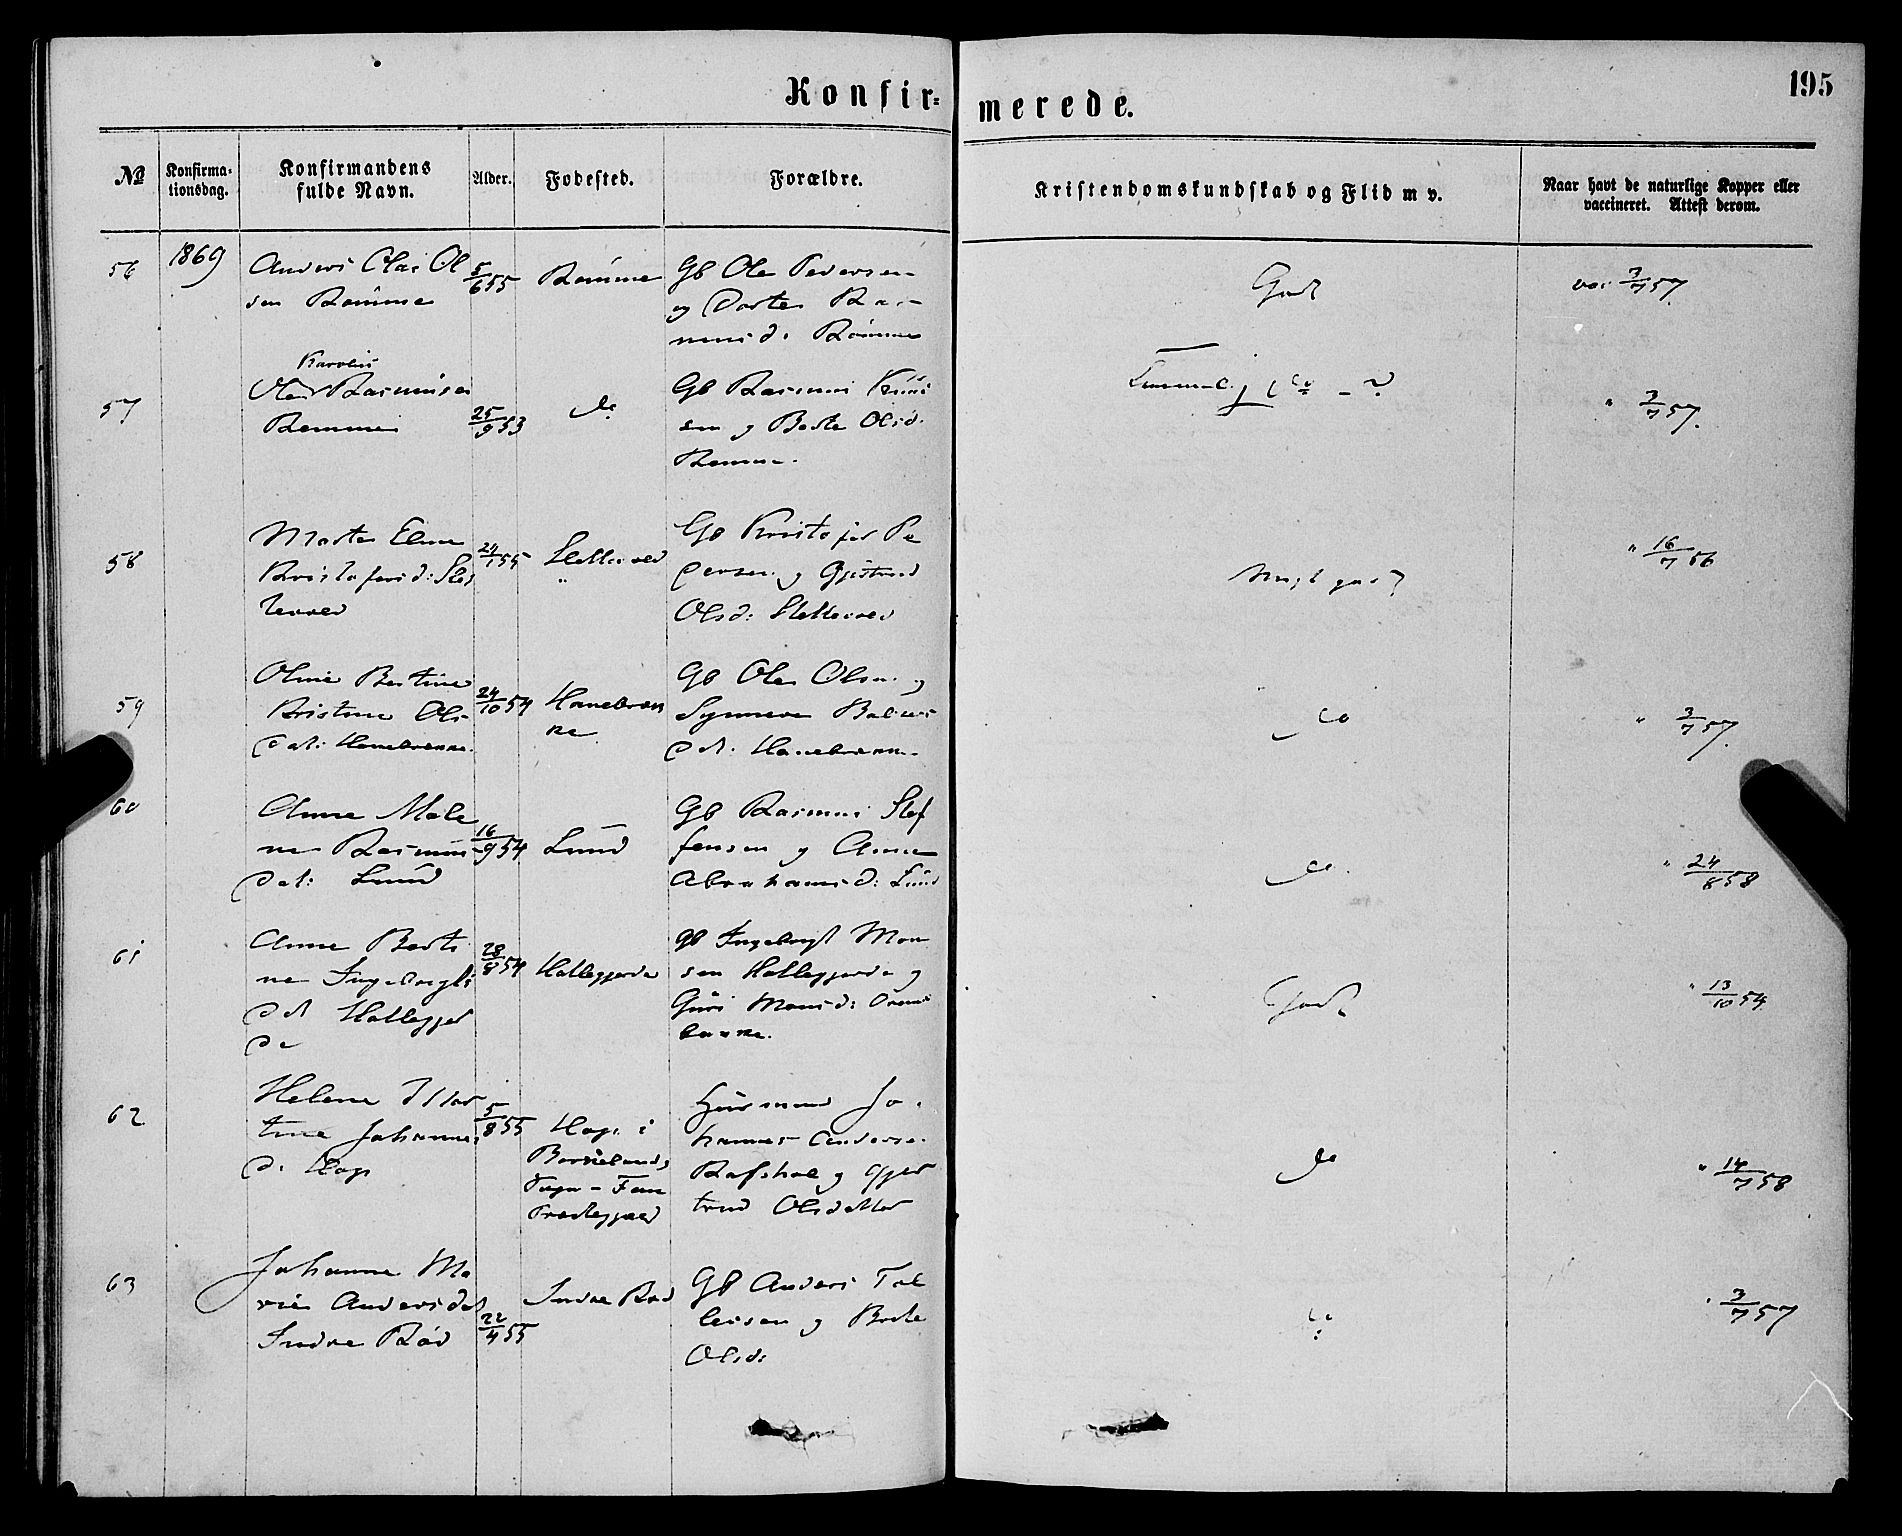 Konfir=
merede.
195
№
Konfirma=
tionsdag.
Konfirmandens
fulde Navn.
Alder.
Fødested.
Forældre.
Kristendomskundskab og Flid m v.
Naar havt de naturlige Kopper eller
vaccineret. Attest derom.
56
1869
Anders Olai Ol
sen Rømme
5/6 55
Rømme
Gb Ole Pedersen
og Dorte Ras
musd: Rømme
Godt
vac 3/7 57.
57
Karolius
Ole Rasmusen
Remme
25/9 53
do
Gb Rasmus Knud
sen og Berte Olsd.
Remme.
" 3/7 57.
58
Marte Eline
Kristofersd: Slet
tevold
24/1 55
Slettevold
Gb Kristofer Pe
dersen og Gjertrud
Olsd: Slettevold
Meget godt
" 16/7 56
59
Oline Bertine
Kristine Ols
dat: Hanebrekke.
24/10 54
Hanebrek
ke
Gb Ole Olsen og
Synneve
dat: Hanebrekke
do
" 3/7 57.
60
Anne Male
ne Rasmus
dat: Lund
16/9 54
Lund
Gb Rasmus Stef
fensen og Anne
Abrahamsd: Lund
do.
" 24/8 58
61
Anne Berti
ne Ingebrigts
dat Hatlegjer
de
28/8 54
Hatlegjerde
Gb Ingebrigt Mon
sen Hatlegjerde og
Guri Monsd:
Godt
" 13/10 54
62
Helene
tine Johannes
d: Hop
5/8 55
Hop i
Sogn – Fane
Præstegjæld
Huusmand Jo.
hannes Anderse.
og Gjer
trud Olsdatter
do
" 14/7 58
63
Johanne Ma
rie Andersdat
Indre Rød
22/4 55
Indre Rød
Gb Anders Tol
leisen og Berte
Olsd:
" 3/7 57